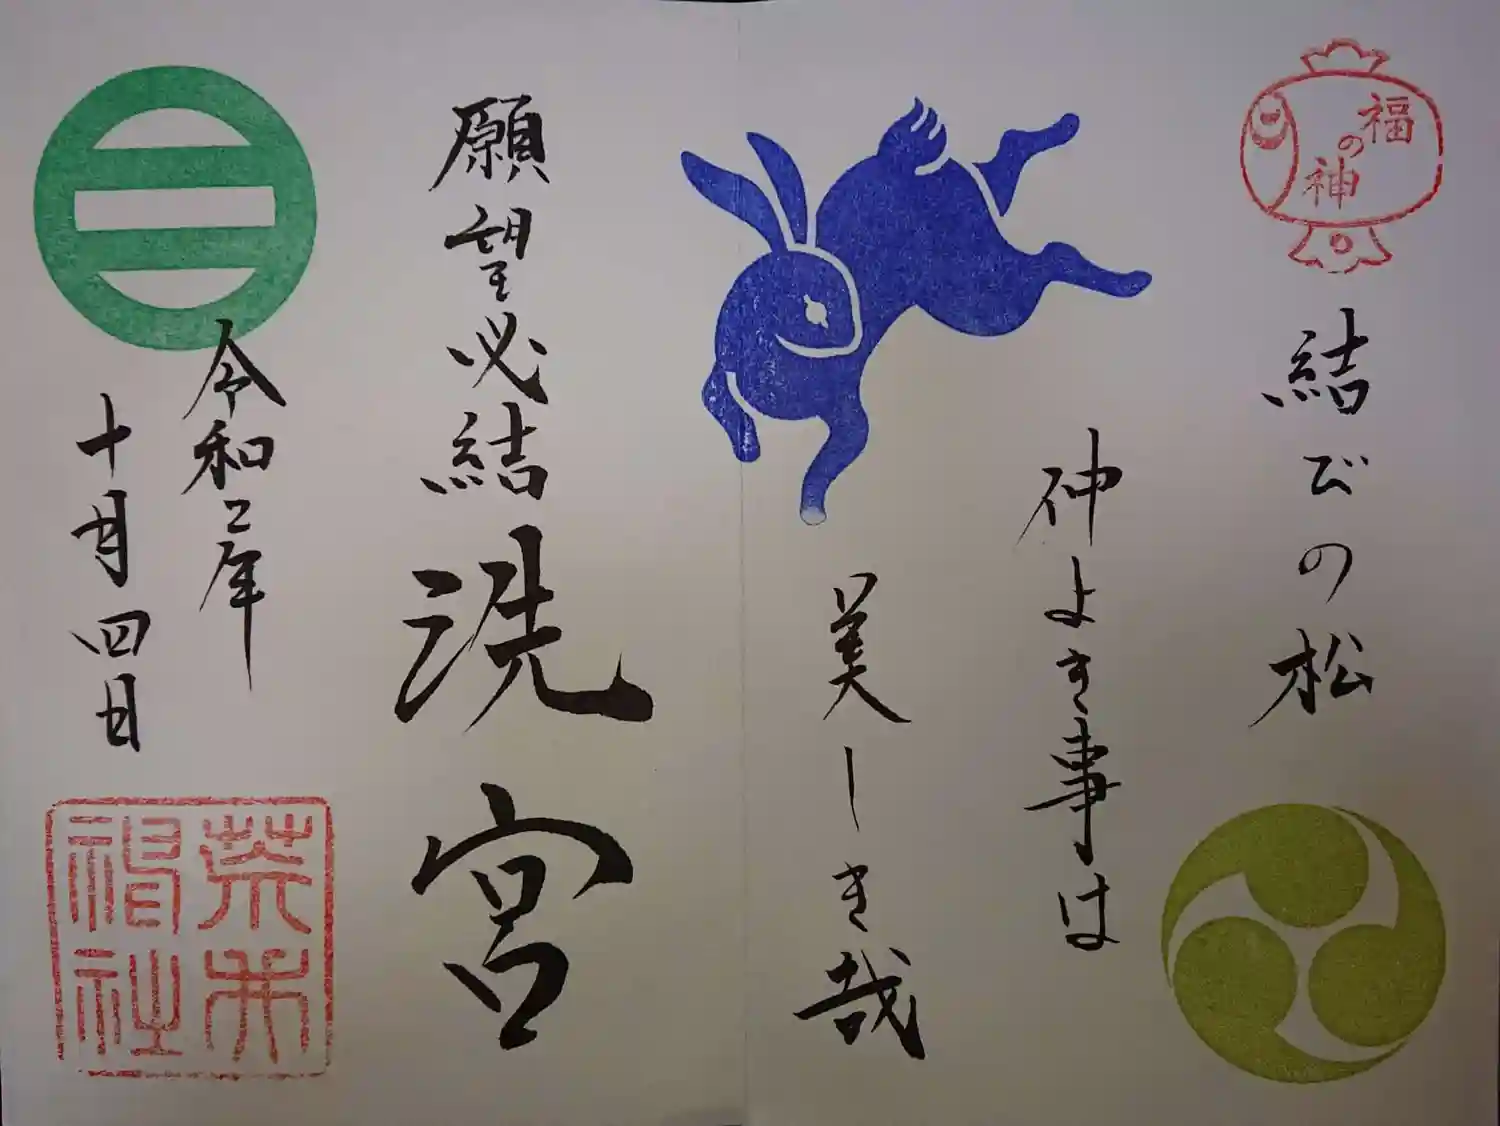 福の神
結びの松
仲よき事は
美しき哉
願望必結 洗宮
令和二年
十月四日
荒井
神社